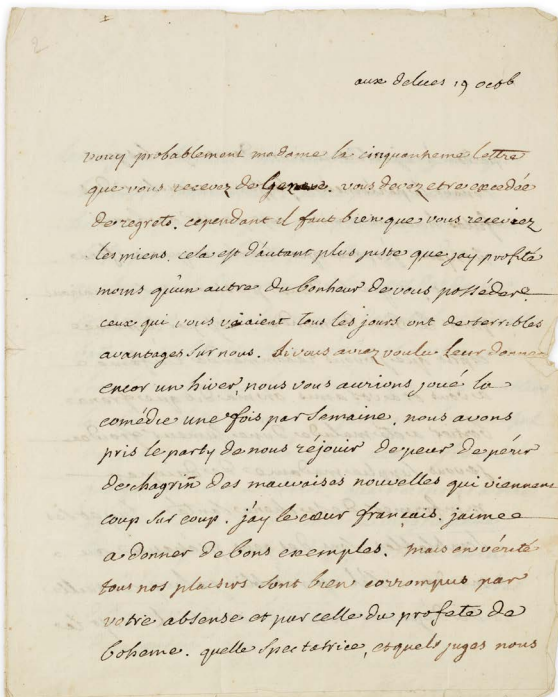 2
aux delices 19 octb
voicy probablement madame la cinquantieme lettre
que vous recevez de Geneve. vous devez etre excedée
de regrets. cependant il faut bien que vous receviez
les miens. cela est d'autant plus juste que jay profité
moins qu'un autre du bonheur de vous posséder.
ceux qui vous voiaient tous les jours ont de terribles
avantages sur nous. si vous aviez voulu leur donner
encor un hiver, nous vous aurions joué la
comédie une fois par semaine. nous avons
pris le party de nous réjouir de peur de périr
de chagrin des mauvaises nouvelles qui viennent
coup sur coup. j'ay le cœur français. jaime
a donner de bons exemples. mais en vérité
tous nos plaisirs sont bien corrompus par
votre absense et par celle du profete de
boheme. quelle spectatrice, et quels juges nous